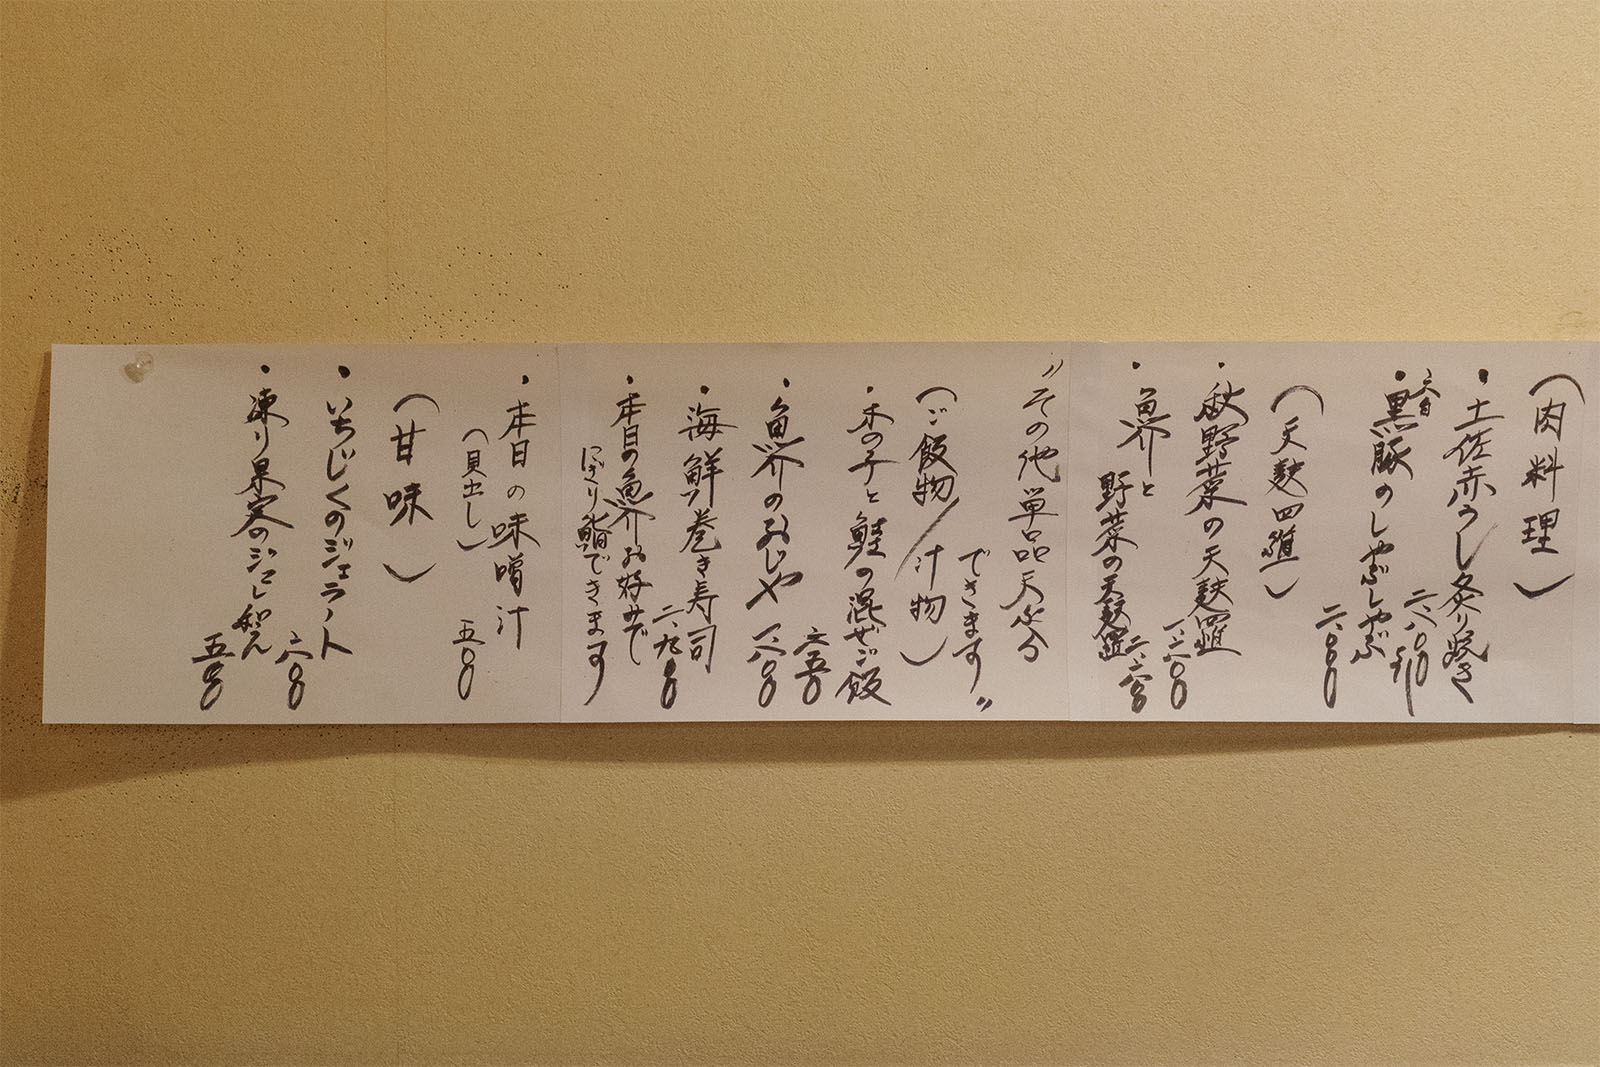 （肉料理）
・土佐赤うし炙り焼き
二、八〇〇より
六白
・黒豚のしゃぶしゃぶ
二、八〇〇
（天麩羅）
・秋野菜の天麩羅
一、六〇〇
・魚介と
野菜の天麩羅
二、六〇〇
〃その他単品天ぷら
できます〃
（ご飯物／汁物）
・木の子と鮭の混ぜご飯
六五〇
・魚介のおじや
一、八〇〇
・海鮮巻き寿司
二、九〇〇
・本日の魚介お好みで
にぎり鮨できます
・本日の味噌汁
（貝出し）
五〇〇
（甘味）
・いちじくのジェラート
六〇〇
・凍り果実の
五〇〇